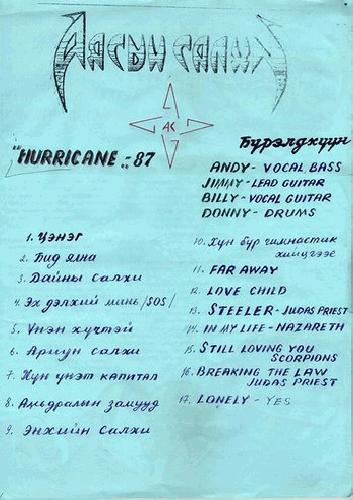 Аягын салхи
АС
"HURRICANE"-87
Бүрэлдхүүн
ANDY - VOCAL, BASS
JIMMY - LEAD GUITAR
BILLY - VOCAL GUITAR
DONNY - DRUMS
1. Цэнэг
2. Бид ялна
3. Дайны салхи
4. Эх дэлхий минь /SOS/
5. Үнэн хүчтэй
6. Аргын салхи
7. Хүн үнэт капитал
8. Амьдралын замууд
9. Энхийн салхи
10. Хүн бүр гимнастик
хийцгээе
11. FAR AWAY
12. LOVE CHILD
13. STEELER - JUDAS PRIEST
14. IN MY LIFE - NAZARETH
15. STILL LOVING YOU
SCORPIONS
16. BREAKING THE LAW
JUDAS PRIEST
17. LONELY - YES